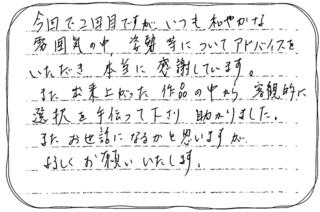 今回で二回目ですが いつも和やかな
雰囲気の中、姿勢等についてアドバイスを
いただき 本当に 感謝しています。
また 出来上がった 作品の中から 客観的に
選択を手伝って下さり 助かりました。
またお世話になるかと思いますが
よろしくお願いいたします。